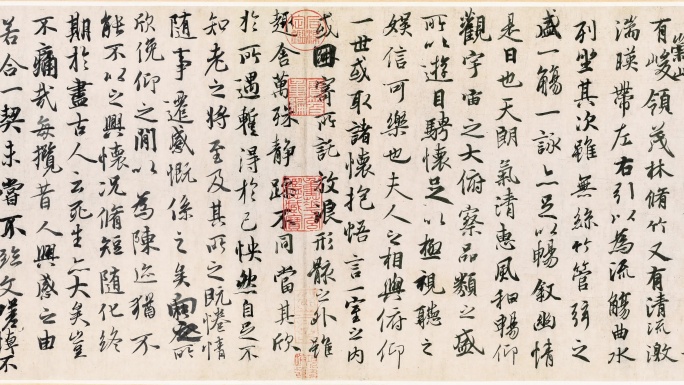 崇山
有峻領茂林脩竹又有清流激
湍暎帶左右引以為流觴曲水
列坐其次雖無絲竹管弦之
盛一觴一詠亦足以暢叙幽情
是日也天朗氣清惠風和暢仰
觀宇宙之大俯察品類之盛
所以遊目騁懷足以極視聽之
娛信可樂也夫人之相與俯仰
一世或取諸懷抱悟言一室之內
或因寄所託放浪形骸之外雖
趣舍萬殊靜躁不同當其欣
於所遇蹔得於己怏然自足不
知老之將至及其所之既惓情
隨事遷感慨係之矣向之所
欣俛仰之閒以為陳迹猶不
能不以之興懷況脩短隨化終
期於盡古人云死生亦大矣豈
不痛哉每攬昔人興感之由
若合一契未嘗不臨文嗟悼不